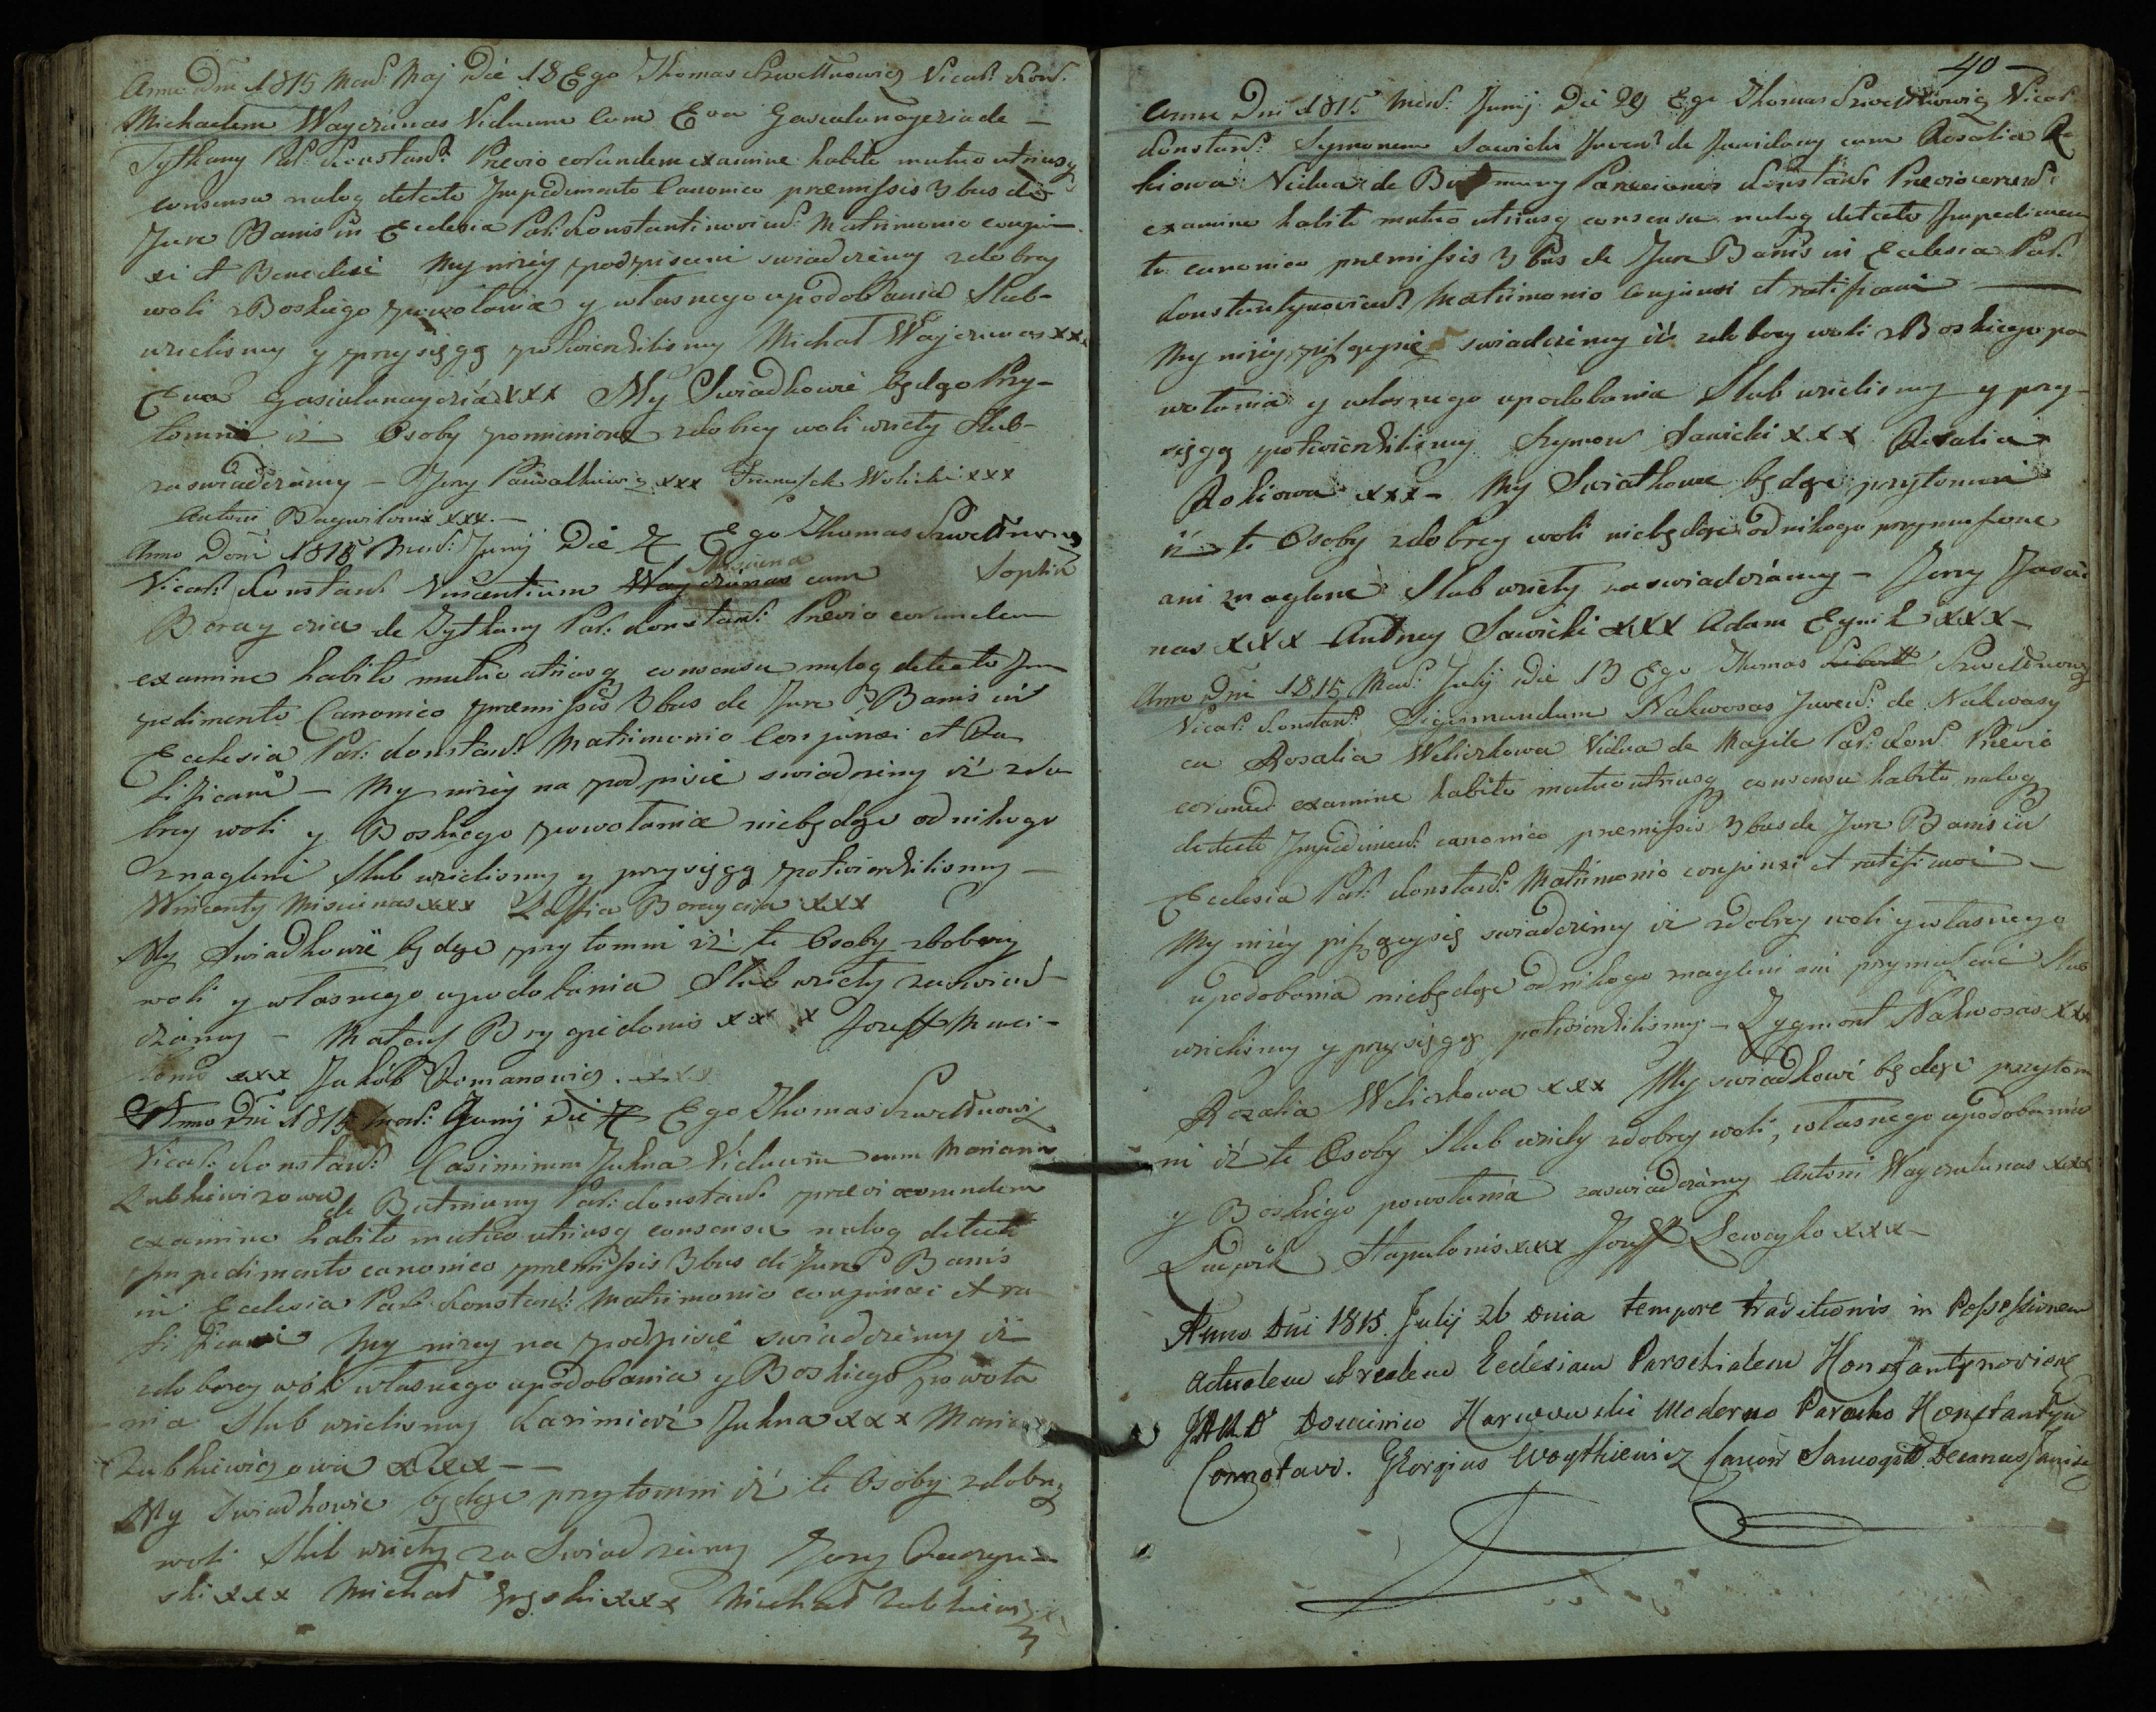 Anno Dni 1815 Mens: Maj Die 18 Ego Thomas Szwettnowicz Vicar: Konst.
Michaelem Wayczunas Viduum Cum Eva Gasiulunayczia de —
Tytkany Par: Konstans: Previo eorundem examine habito mutuo utriusq
consensu nuloq detecto Impedimento Canonico premissis 3bus de
Jure Banis in Ecclesia Par: Konstantinoviens: Matrimonio conjun-
xi et Benedixi My niżey podpisani swiadczemy z dobrey
woli z Boskiego powołania y własnego upodobania Slub-
wzielismy y przysięgą potwierdzilismy Michał Wayczunas xxx
Ewa Gasiulunayczia xxx My Swiadkowie będąc Przy-
tomni iż Osoby pomienione z dobrey woli wzieły Slub-
zaswiadczamy – Jerzy Pawalkiewicz xxx Franciszek Wolicki xxx
Antoni xxx –
Anno Domi 1815 Mens: Junij Die 7 Ego Thomas Szwettnowicz
Misciuna
Vicar: Konstans: Vincentium Wayczunas cum Sophia
Boraycia de Tytkany Par: Konstans: Previo eorundem
examine habito mutuo utriusq consensu nuloq detecto Im
pedimento Canonico premissis 3bus de Jure Banis in
Ecclesia Par: Konstans: Matrimonio Conjunxi et Ra
tificavi – My niżey na podpisie swiadczemy iż z do
brey woli y Boskiego powołania niebędąc od nikogo
znagleni Slub wzielismy y przysięgą potwierdzilismy –
Wincenty Misciunas xxx Zoffia Boraycia xxx
My Swiadkowie będąc przytomni iż te Osoby z dobrey
woli y własnego upodobania Slub wzieły zaswiad-
czamy – Mateusz xx x Jozeff Misci-
xxx Jakób Romanowicz . xxx
Anno Dni 1815 Mens: Junij Die 7 Ego Thomas Szwettnowicz
Vicar: Konstans: Casimirum Jukna Viduum cum Mariana
Zubkiewiczowa de Butniuny Par: Konstans: previo eorundem
examine habito mutuo utriusq consensu nuloq detecto
Impedimento canonico premissis 3bus de Jure Banis
in Ecclesia Par: Konstans: Matrimonio conjunxi et ra-
tificavi My niżey na podpisie swiadczemy iż
z dobrey woli własnego upodobania y Boskiego powoła
nia Slub wzielismy Kazimierz Jukna xxx Maria
Zubkiewiczowa xxx – –
My Swiadkowie będąc przytomni iż te Osoby z dobrey
woli Slub wzieły za Swiadczemy Jerzy
ski xxx Michał xxx Michał Zubkiewicz
40 –
Anno Dni 1815 Mens: Junij Die 29 Ego Thomas Szwettnowicz Vicar
Konstans: Symonem Sawicki Juven: de cum Rosalia Ro
kiowa Vidua de Parocianos Konstans: Previo eorund:
examine habito mutuo utriusq consensu nuloq detecto Impedimen
to canonico premissis 3bus de Jure Banis in Ecclesia Par:
Konstantynoviens: Matrimonio Conjunxi et ratificavi ——
My niżey swiadczemy iż z dobrey woli z Boskiego po
wołania y własnego upodobania Slub wzielismy y przy-
sięgą potwierdzilismy Szymon Sawicki xxx Rosalia
Rokiowa xxx – My Swiatkowe będąc przytomni
iż te Osoby z dobrey woli niebędąc od nikogo przymuszone
ani znaglone Slub wzieły zaswiadczamy – Jerzy
nas xxx Andrzey Sawicki xxx Adam xxx –
Anno Dni 1815 Mens: Julij Die 13 Ego Thomas Szwettnowicz
Vicar: Konstans: Sigismundum Nakwosas Juvens: de Nakwasy
cu Rosalia Weliczkowa Vidua de Par: Konst: Previo
eorund: examine habito mutuo utriusq consensu habito nuloq
detecto Impedimen: canonico premissis 3bus de Jure Banis in
Ecclesia Par: Konstans: Matrimonio conjunxi et ratificavi –
My niżey piszący się swiadczemy iż z dobrey woli y własnego
upodobania niebędąc od nikogo znagleni ani przymuszeni Slub
wzielismy y przysięgą potwierdzilismy. – Zygmont Nakwosas xxx
Rozalia Weliczkowa xxx My swiadkowi będąc przytom
ni iż te Osoby Slub wzieły z dobrey woli, własnego upodobania
y Boskiego powołania zaswiadczamy Antoni Wayczulunas xxx
Ludwik Stapulonis xxx Jozeff xxx –
Anno Dni 1815 Julij 26 Dnia tempore traditionis in Possessionem
Actualem et realem Ecclesiam Parochialem Konstantynoviens
Dominico Harwowski Moderno Parocho Konstantyn
Connotavi. Georgius Woytkiewicz Canon Samogit Decanus